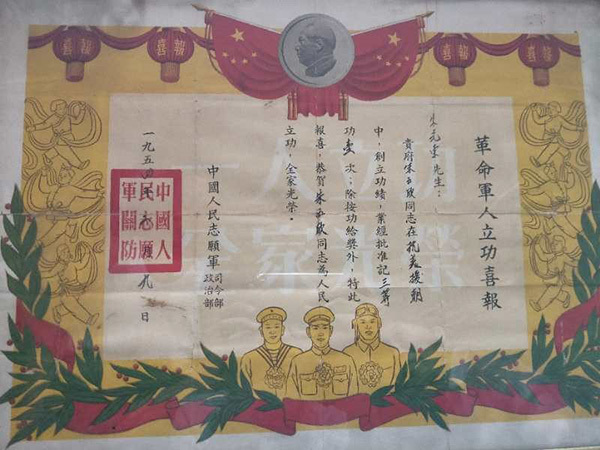 喜報
喜報
喜報
喜報
革命軍人立功喜報
先生：
貴府朱 欣同志在抗美援朝
中，創立功績，業經批准記三等
功壹次；除按功給獎外，特此
報喜，恭賀朱 欣同志為人民
立功，全家光榮。
中國人民志願軍
司令部
政治部
一九五 年 月九日
中國人
民志願
軍關防
功
全家光榮